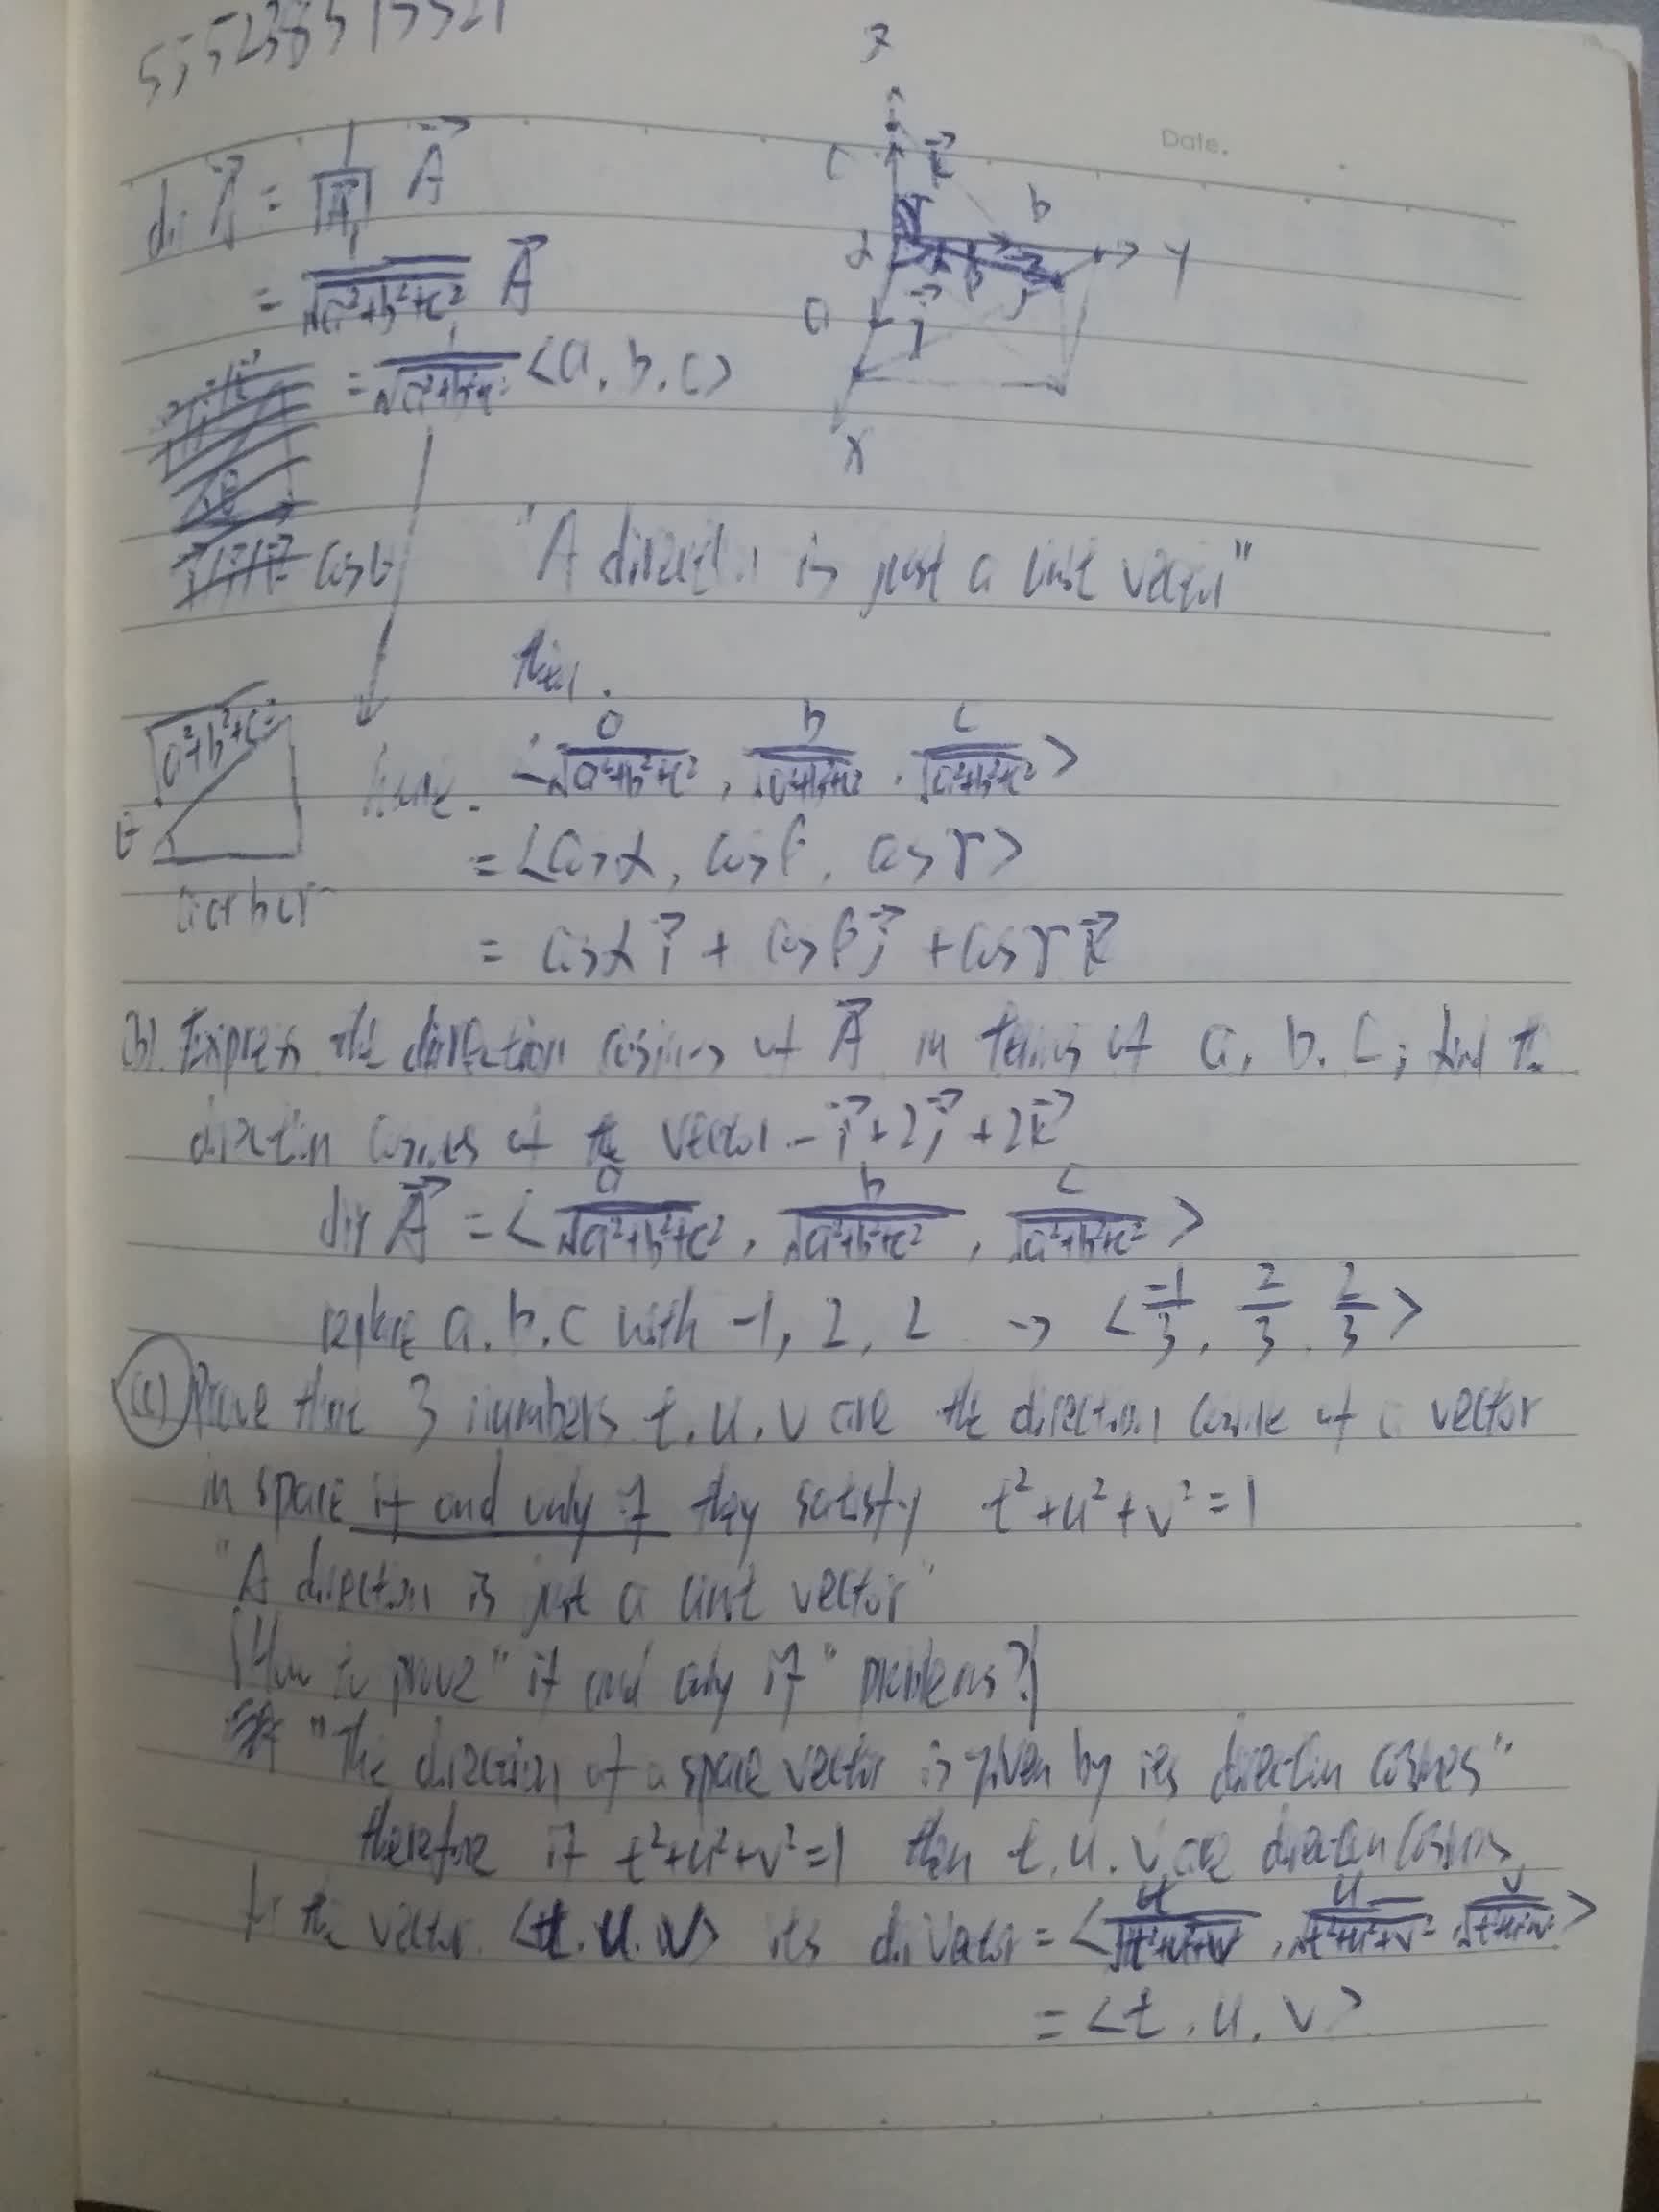 Date.
dir A⃗ = 1/|A⃗| A⃗
= 1/√(a²+b²+c²) A⃗
= 1/√(a²+b²+c²) <a, b, c>
z
c k⃗
b
α β y
a i⃗ j⃗
x
cos θ
"A direction is just a unit vector"
then.
√(a²+b²+c²)
θ
a or b or
<a/√(a²+b²+c²), b/√(a²+b²+c²), c/√(a²+b²+c²)>
= <cos α, cos β, cos γ>
= cos α i⃗ + cos β j⃗ + cos γ k⃗
(b). Express the direction cosines of A⃗ in terms of a, b, c; find the
direction cosines of the vector - i⃗ + 2j⃗ + 2k⃗
dir A⃗ = <a/√(a²+b²+c²), b/√(a²+b²+c²), c/√(a²+b²+c²)>
replace a, b, c with -1, 2, 2 → <-1/3, 2/3, 2/3>
(c) Prove that 3 numbers t, u, v are the direction cosine of a vector
in space if and only if they satisfy t²+u²+v²=1
"A direction is just a unit vector"
(How to prove "if and only if" problems?)
"The direction of a space vector is given by its direction cosines"
therefore if t²+u²+v²=1 then t, u, v are direction cosines
for the vector <t, u, v> its dir vector = <u/√(t²+u²+v²), u/√(t²+u²+v²), v/√(t²+u²+v²)>
= <t, u, v>